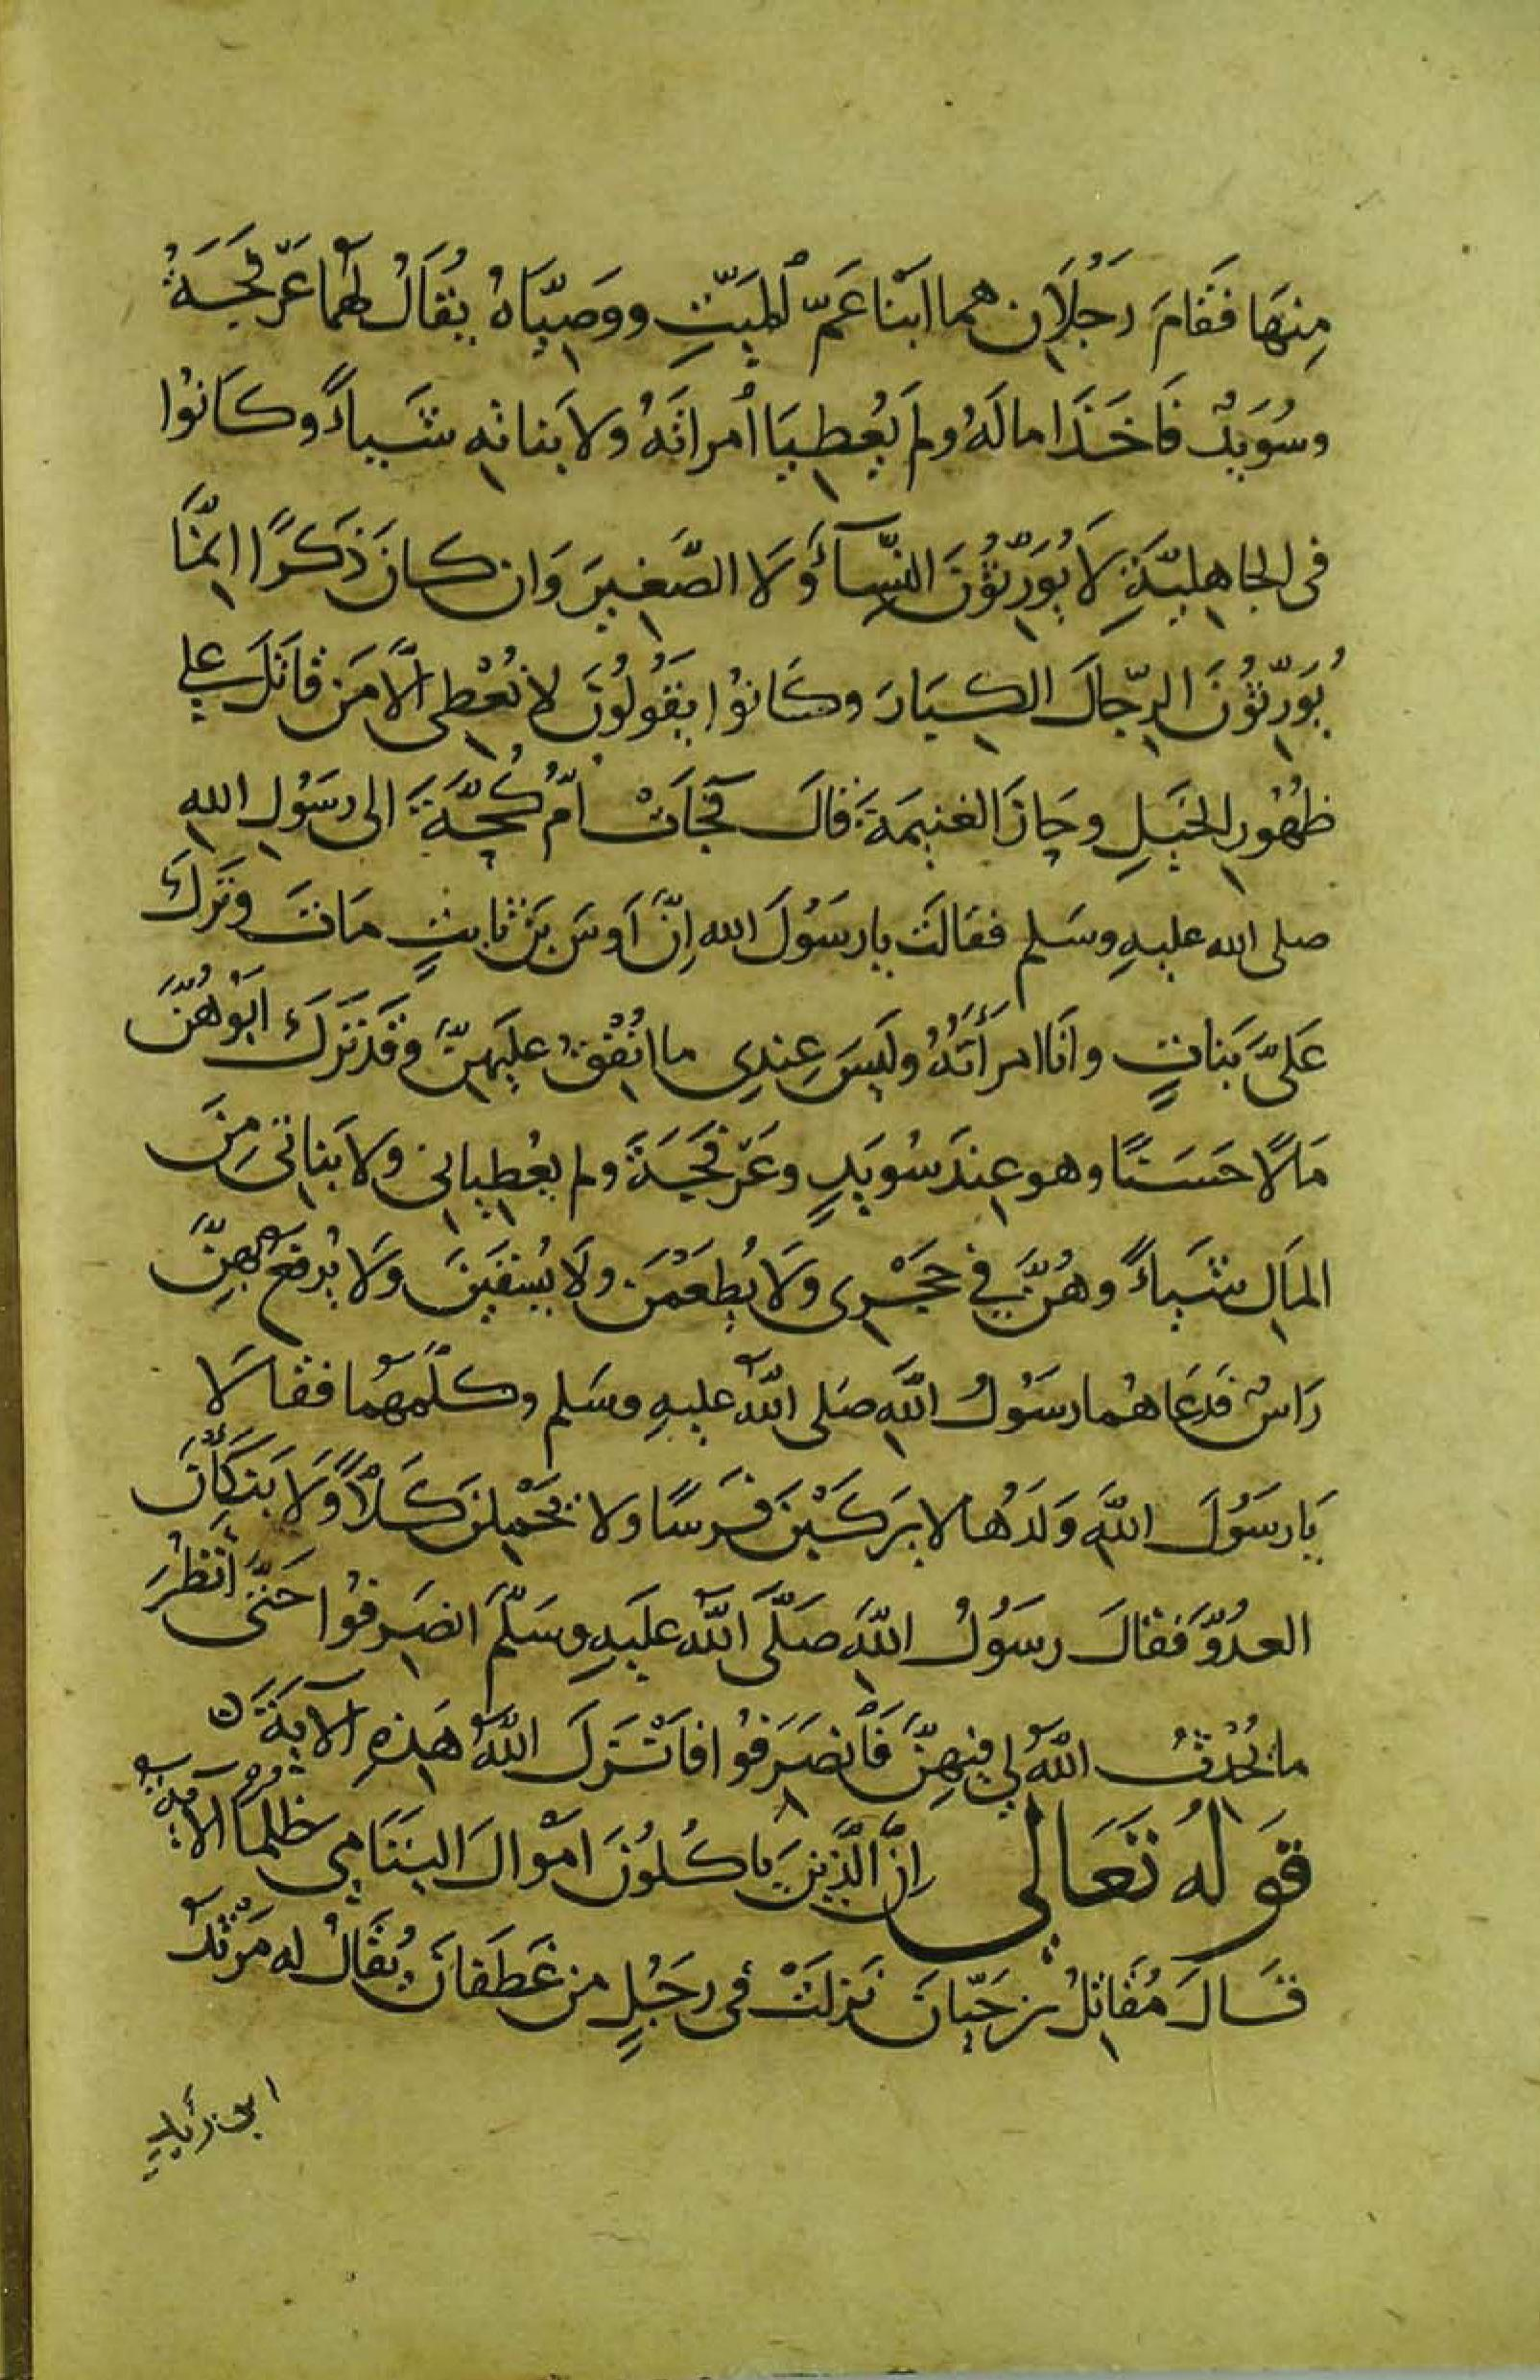 مِنهَا فَقَامَ رَجُلَانِ هما ابْنَا عَمّ المَيّتِ ووَصِيَّاهُ يُقَالُ لهُمَا عَرْفَجَةُ
وسُوَيْدٌ فَاَخَذَا مالَهُ ولم يُعْطِيَا امراتَهُ ولا بَناتِهِ شَيـاءً وكَانُوا
فى الجاهِليَّةِ لَا يُوَرِّثُونَ النِّسَآءَ وَلَا الصَّغِيرَ وَان كانَ ذَكَرًا اِنمَّا
يُوَرِّثُونَ الرِّجَالَ الكِبَارَ وكَانوُا يَقُولُونَ لا نُعْطِى اِلَّا مَن قاتَلَ على
ظُهُورِ الخَيلِ وحَازَ الغنيمَةَ قالَ فجَآتْ اُمُّ كُجَّةَ الى رَسُولِ اللهِ
صلى الله عليهِ وسَلم فقَالَت يا رسَوُلَ الله اِنَّ اَوسَ بنَ ثابتٍ مَاتَ وتَركَ
عَلَىَّ بَناتٍ وانَا امرَأتُهُ ولَيسَ عِندِى ما اُنْفِقُ عليَهِنَّ وقَد تَركَ اَبُوهُنَّ
مَالًا حَسَنًا وهو عِندَ سُوَيدٍ وعَرْفَجَةَ ولم يعْطِيانى ولا بَناتى مِنَ
المَالِ شَيـاءً وهُنَّ في حَجْرِى ولَا يُطعَمْنَ ولَا يُسْقَينَ ولَا يُرفَعُ لهِنَّ
رَاسٌ فَدعَاهُما رسَوُلُ اللَّهِ صَلى اللَّهُ عليهِ وسَلم وكلَّمَهُما فقالَا
يَا رسَوُلَ اللَّهِ وَلَدُها لا يَركَبْنَ فَرسًا ولا يَحْمِلنَ كَلاًّ وَلَا يَنكَأنَ
العدُوَّ فقالَ رسَوُلُ اللَّهِ صَلَّى اللَّهُ عليَهِ وسَلَّمَ انصَرِفُوا حَتَّى أنظُرَ
ما يُحْدِثُ اللَّهُ لي فيهِنَّ فَانصَرَفُوا فاَنْزَلَ اللَّهُ هَذِهِ الآيَةَ ٥
قَولُهُ تَعَالى اِنَّ الَّذِينَ يَاكُلُونَ امْوالَ اليَتَامى ظُلمًا الآيَةَ
قَالَ مُقَاتِلُ بنُ حَيَّانَ نَزلَتْ فى رجُلٍ من غَطَفانَ يُقَالُ له مَرْثَدُ